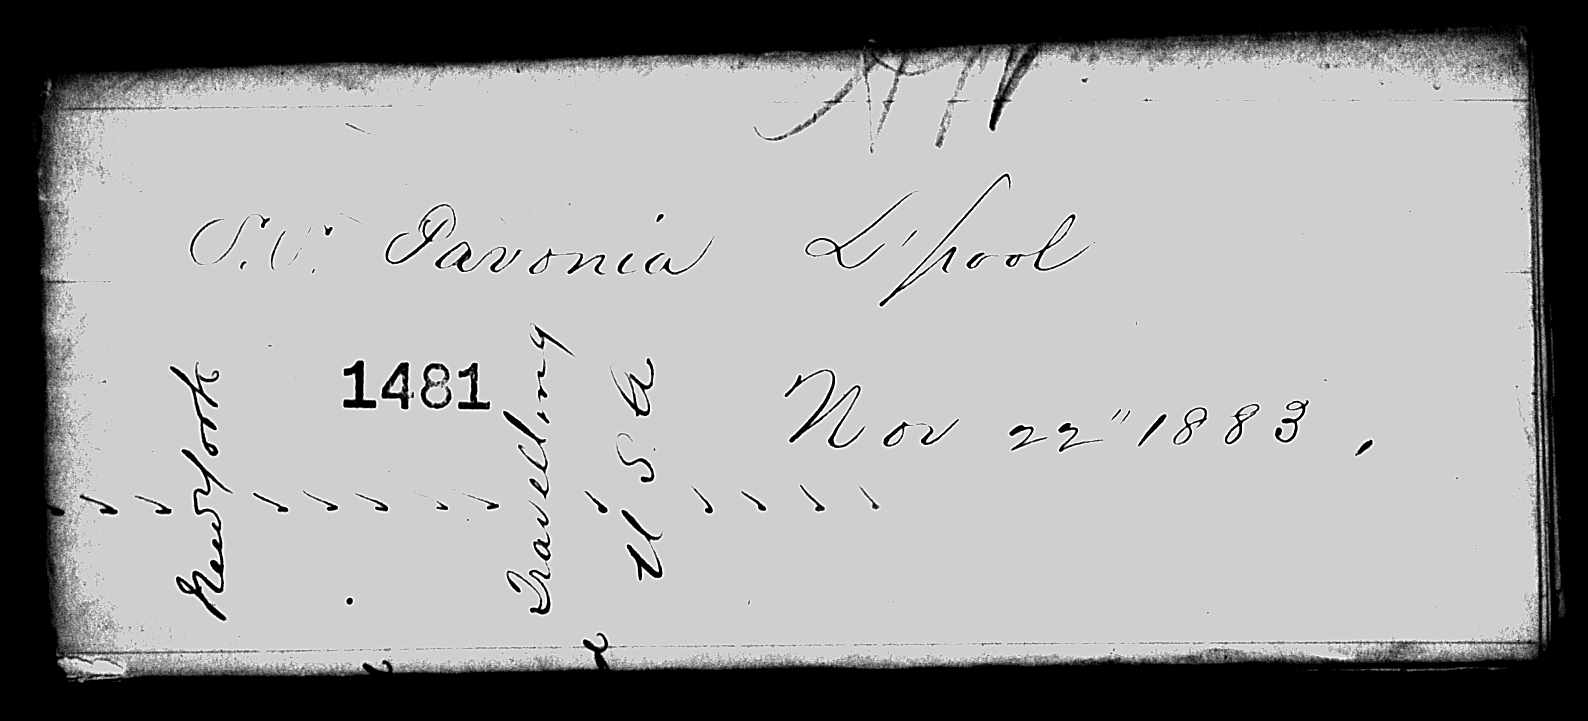 S.S. Pavonia L'pool
1481
Nov 22" 1883,
New York
Travelling
U S A